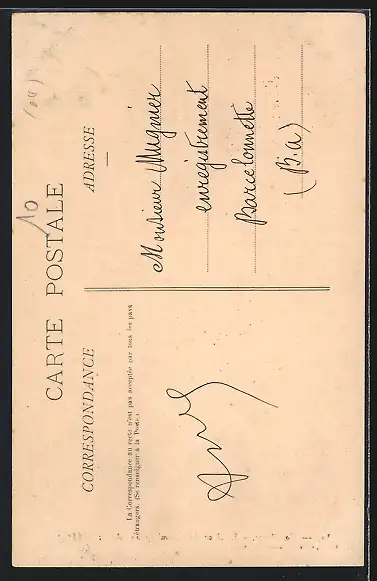 CARTE POSTALE
10
(04)
CORRESPONDANCE
ADRESSE
La Correspondance au recto n'est pas acceptée par tous les pays
étrangers. (Se renseigner à la Poste.)
Monsieur Mugnier
enregistrement
Barcelonnette
(B.a)